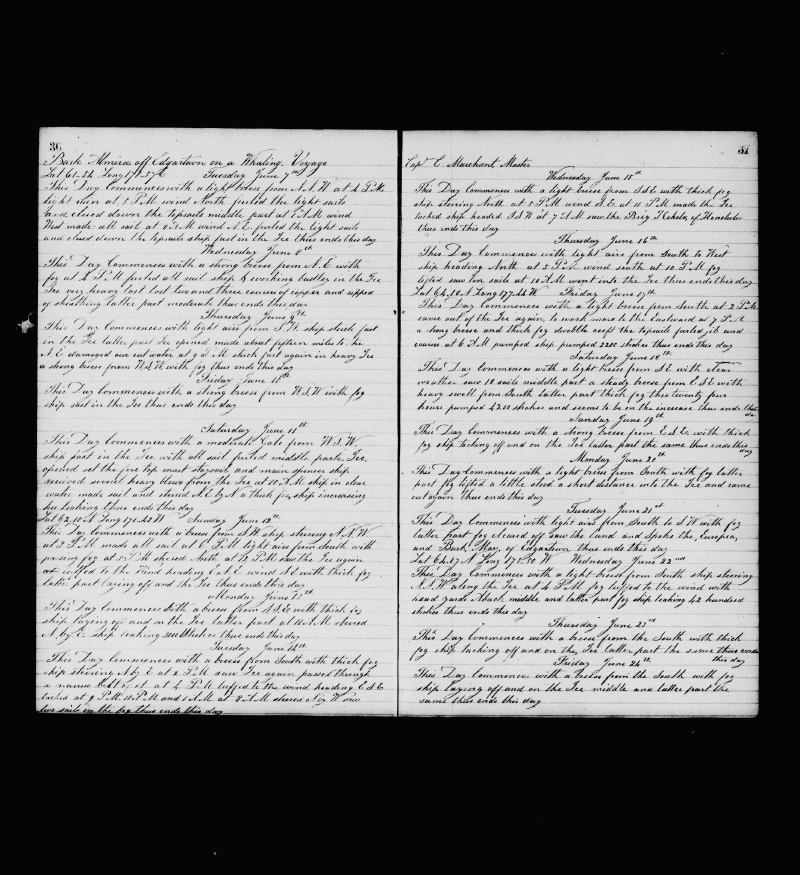 36
Bark Almira off Edgartown on a Whaling Voyage
Tuesday June 7th
This Day Commences with a light breeze from N.N.W at 4 P.M.
light rain at 8 P.M wind North furled the light sails
and clued down the topsails middle part at 1 A.M wind
West made all sail at 8 A.M wind N.E. furled the light sails
and clued down the topsails ship fast in the Ice thus ends this day
Wednesday June 8th
This Day Commences with a strong breeze from N.E. with
fog at 2 P.M furled all sail ship working badley in the Ice
Ice very heavy lost two and three courses of copper and ripped
of sheathing latter part moderate thus ends this day
Thursday June 9th
This Day Commences with light airs from S.W. ship stuck fast
in the Ice latter part Ice opened made about fifteen miles to the
N.E. damaged our cut water at 9 P.M stuck fast again in heavy Ice
a strong breeze from W.S.W. with fog thus ends this day
Friday June 10th
This Day Commences with a strong breeze from W.S.W with fog
ship fast in the Ice thus ends this day
Saturday June 11th
This Day Commences with a moderate Gale from W.S.W.
ship fast in the Ice with all sail furled middle parts Ice
opened set the fore top mast staysail and main spencer ship
received several heavy blows from the Ice at 10 A.M ship in clear
water made sail and steered N.E by N a thick fog ship increasing
her leaking thus ends this day
Lat 62.10 N Long 178.42 W Sunday June 12th
This Day Commences with a breeze from S.W ship steering N.N.W.
at 3 P.M made all sail at 6 P.M light airs from South with
passing fog at 5 P.M steered North at 12 P.M saw the Ice again
luffed to the Wind heading E.N.E wind S.E with thick fog
latter part laying off and the Ice thus ends this day
Monday June 13th
This Day Commences with a breeze from S.S.E with thick fog
ship laying off and on the Ice latter part at 11 A.M steered
N. by E. ship leaking strokes thus ends this day
Tuesday June 14th
This Day Commences with a breeze from South with thick fog
ship steering N by E at 2 P.M saw Ice again passed through
a narrow belt of it at 4 P.M luffed to the wind heading E.S.E
tacked at 9 P.M 12 P.M and 4 A.M at 8 A.M steered N by W saw
two sails in the fog thus ends this day
37
Capt C. Marchant, Master
Wednesday June 15th
This Day Commences with a light breeze from S.S.E with thick fog
ship steering North at 8 P.M wind S.E. at 11 P.M made the Ice
tacked ship headed S.S.W at 7 A.M saw the Brig Kohola of Honolulu
thus ends this day
Thursday June 16th
This Day Commences with light airs from South to West
ship heading North at 5 P.M wind south at 10 P.M fog
lifted saw ten sails at 11 A.M went into the Ice thus ends this day
Lat 64.10 N Long 177.44 W Friday June 17th
This Day Commences with a light breeze from South at 3 P.M
came out of the Ice again, to work more to the Eastward at 7 P.M
a strong breeze and thick fog double reeft the topsails furled jib and
courses at 6 A.M pumped ship pumped 2250 strokes thus ends this day
Saturday June 18th
This Day Commences with a light breeze from S.E. with clear
weather saw 18 sails middle part a steady breeze from E.S.E with
heavy swell from South latter part thick fog this twenty four
hours pumped 4200 strokes and seems to be on the increase thus ends this
day
Sunday June 19th
This Day Commences with a strong breeze from E.S.E. with thick
fog ship tacking off and on the Ice latter part the same thus ends this
day
Monday June 20th
This Day Commences with a light breeze from South with fog latter
part fog lifted a little stood a short distance into the Ice and came
out again thus ends this day
Tuesday June 21st
This Day Commences with light airs from South to S.W with fog
latter part fog cleared off saw the Land and Spoke the, European,
and Bark, Mary, of Edgartown thus ends this day
Wednesday June 22nd
This Day Commences with a light breeze from South ship steering
N.N.W along the Ice at 4 P.M fog luffed to the wind with
head yards aback middle and latter part fog ship leaking 42 hundred
strokes thus ends this day
Thursday June 23rd
This Day Commences with a breeze from the South with thick
fog ship tacking off and on the Ice latter part the same thus ends
this day
Friday June 24th
This Day Commences with a breeze from the South with fog
ship laying off and on the Ice middle and latter part the
same thus ends this day